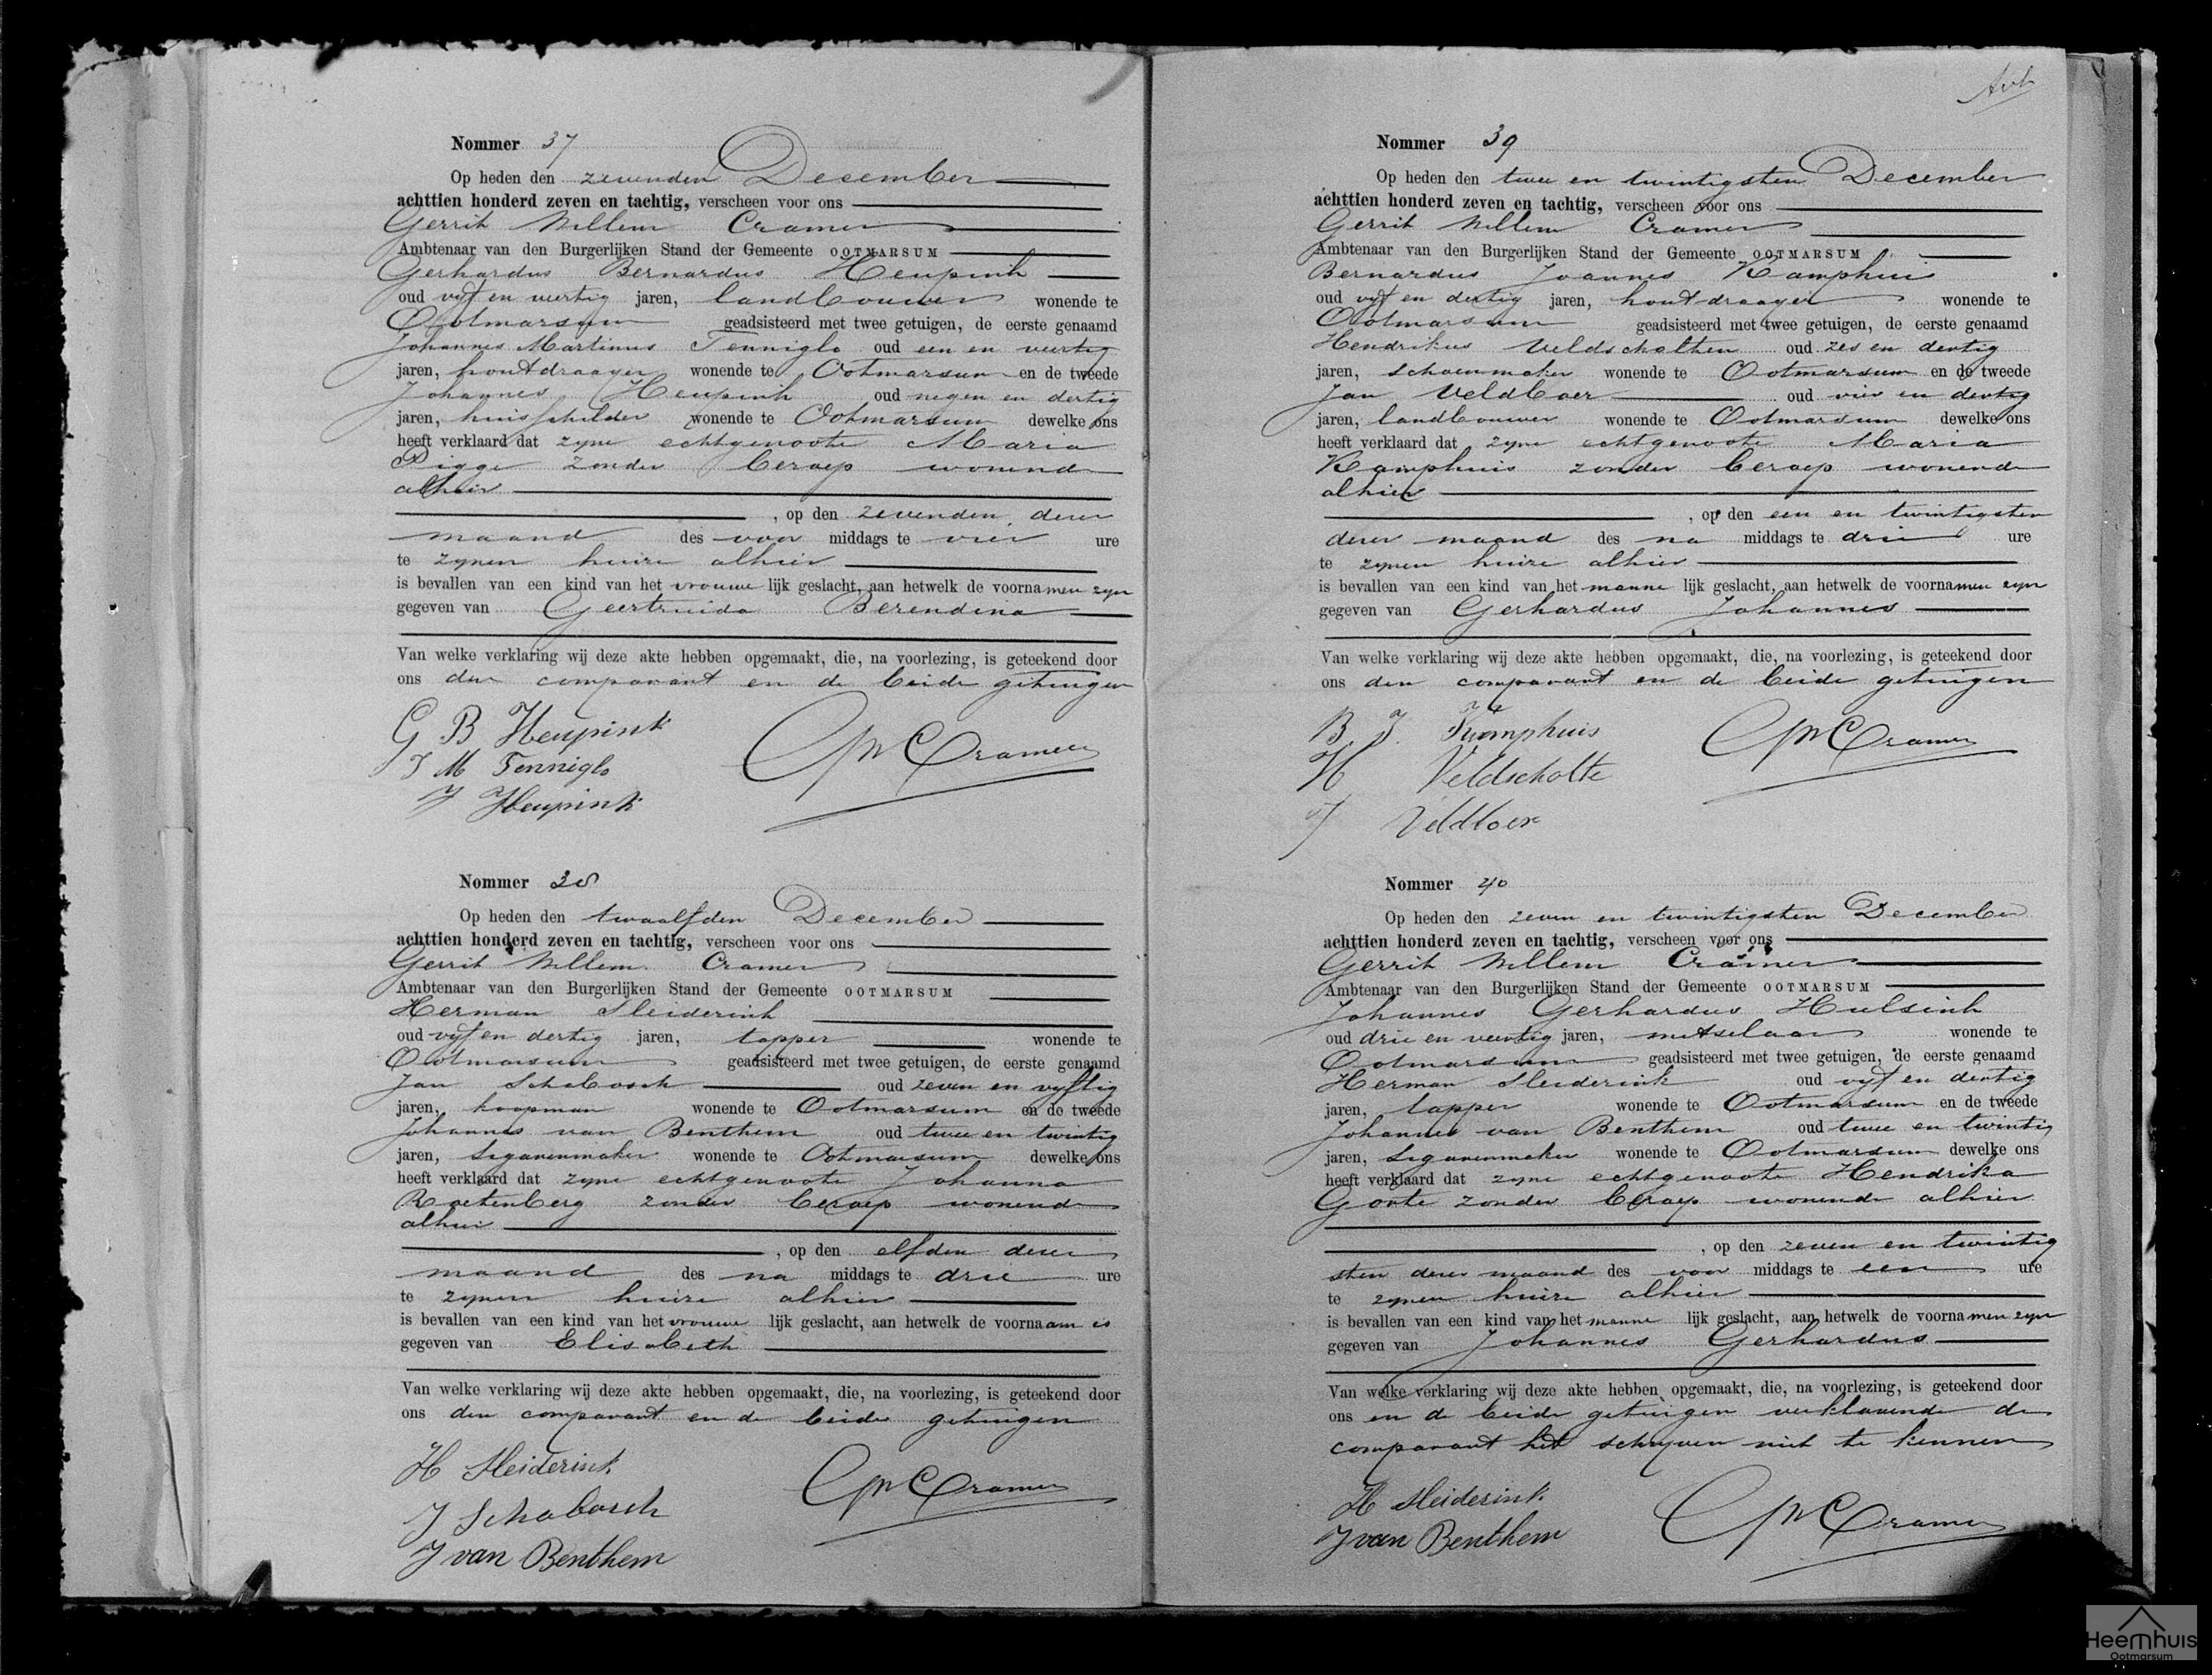 Nommer 37
Op heden den zevenden December
achttien honderd zeven en tachtig, verscheen voor ons
Gerrit Willem Cramer
Ambtenaar van den Burgerlijken Stand der Gemeente OOTMARSUM
Gerhardus Bernardus Heupink
oud vyf en veertig jaren, landbouwer wonende te
Ootmarsum geadsisteerd met twee getuigen, de eerste genaamd
Johannes Martinus Tenniglo oud een en veertig
jaren, houtdraayer wonende te Ootmarsum en de tweede
Johannes Heupink oud negen en dertig
jaren, huisschilder wonende te Ootmarsum dewelke ons
heeft verklaard dat zyne echtgenoote Maria
Pigge zonder beroep wonende
alhier
, op den zevenden dezer
maand des voor middags te vier ure
te zynen huize alhier
is bevallen van een kind van het vrouwe lijk geslacht, aan hetwelk de voornamen zyn
gegeven van Geertruida Berendina
Van welke verklaring wij deze akte hebben opgemaakt, die, na voorlezing, is geteekend door
ons den comparant en de beide getuigen
G B Heupink
J M Tenniglo
J Heupink
GWCramer
Nommer 38
Op heden den twaalfden December
achttien honderd zeven en tachtig, verscheen voor ons
Gerrit Willem Cramer
Ambtenaar van den Burgerlijken Stand der Gemeente OOTMARSUM
Herman Sleiderink
oud vyf en dertig jaren, tapper wonende te
Ootmarsum geadsisteerd met twee getuigen, de eerste genaamd
Jan Schabosch oud zeven en vyftig
jaren, koopman wonende te Ootmarsum en de tweede
Johannes van Benthem oud twee en twintig
jaren, sigarenmaker wonende te Ootmarsum dewelke ons
heeft verklaard dat zyne echtgenoote Johanna
Roetenberg zonder beroep wonende
alhier
, op den elfden dezer
maand des na middags te drie ure
te zynen huize alhier
is bevallen van een kind van het vrouwe lijk geslacht, aan hetwelk de voornaam is
gegeven van Elisabeth
Van welke verklaring wij deze akte hebben opgemaakt, die, na voorlezing, is geteekend door
ons den comparant en de beide getuigen
H Sleiderink
J Schabosch
J van Benthem
GWCramer
Nommer 39
Op heden den twee en twintigsten December
achttien honderd zeven en tachtig, verscheen voor ons
Gerrit Willem Cramer
Ambtenaar van den Burgerlijken Stand der Gemeente OOTMARSUM
Bernardus Joannes Kamphuis
oud vyf en dertig jaren, houtdraayer wonende te
Ootmarsum geadsisteerd met twee getuigen, de eerste genaamd
Hendrikus Veldscholten oud zes en dertig
jaren, schoenmaker wonende te Ootmarsum en de tweede
Jan Veldboer oud vier en dertig
jaren, landbouwer wonende te Ootmarsum dewelke ons
heeft verklaard dat zyne echtgenoote Maria
Kamphuis zonder beroep wonende
alhier
, op den een en twintigsten
dezer maand des na middags te drie ure
te zynen huize alhier
is bevallen van een kind van het manne lijk geslacht, aan hetwelk de voornamen zyn
gegeven van Gerhardus Johannes
Van welke verklaring wij deze akte hebben opgemaakt, die, na voorlezing, is geteekend door
ons den comparant en de beide getuigen
B. J. Kamphuis
H Veldscholte
J Veldboer
GWCramer
Nommer 40
Op heden den zeven en twintigsten December
achttien honderd zeven en tachtig, verscheen voor ons
Gerrit Willem Cramer
Ambtenaar van den Burgerlijken Stand der Gemeente OOTMARSUM
Johannes Gerhardus Hulsink
oud drie en veertig jaren, metselaar wonende te
Ootmarsum geadsisteerd met twee getuigen, de eerste genaamd
Herman Sleiderink oud vyf en dertig
jaren, tapper wonende te Ootmarsum en de tweede
Johannes van Benthem oud twee en twintig
jaren, sigarenmaker wonende te Ootmarsum dewelke ons
heeft verklaard dat zyne echtgenoote Hendrika
Goote zonder beroep wonende alhier
, op den zeven en twintig
sten dezer maand des voor middags te een ure
te zynen huize alhier
is bevallen van een kind van het manne lijk geslacht, aan hetwelk de voornamen zyn
gegeven van Johannes Gerhardus
Van welke verklaring wij deze akte hebben opgemaakt, die, na voorlezing, is geteekend door
ons en de beide getuigen verklarende de
comparant het schryven niet te kennen
H Sleiderink
J van Benthem
GWCramer
Heemhuis
Ootmarsum